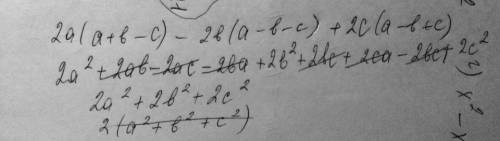 2a(a+b-c) - 2b(a-b-c) + 2c(a-b+c)
2a² + 2ab - 2ac = 2ba + 2b² + 2bc + 2ca - 2bc + 2c²
2a² + 2b² + 2c²
2(a² + b² + c²)
x² - x